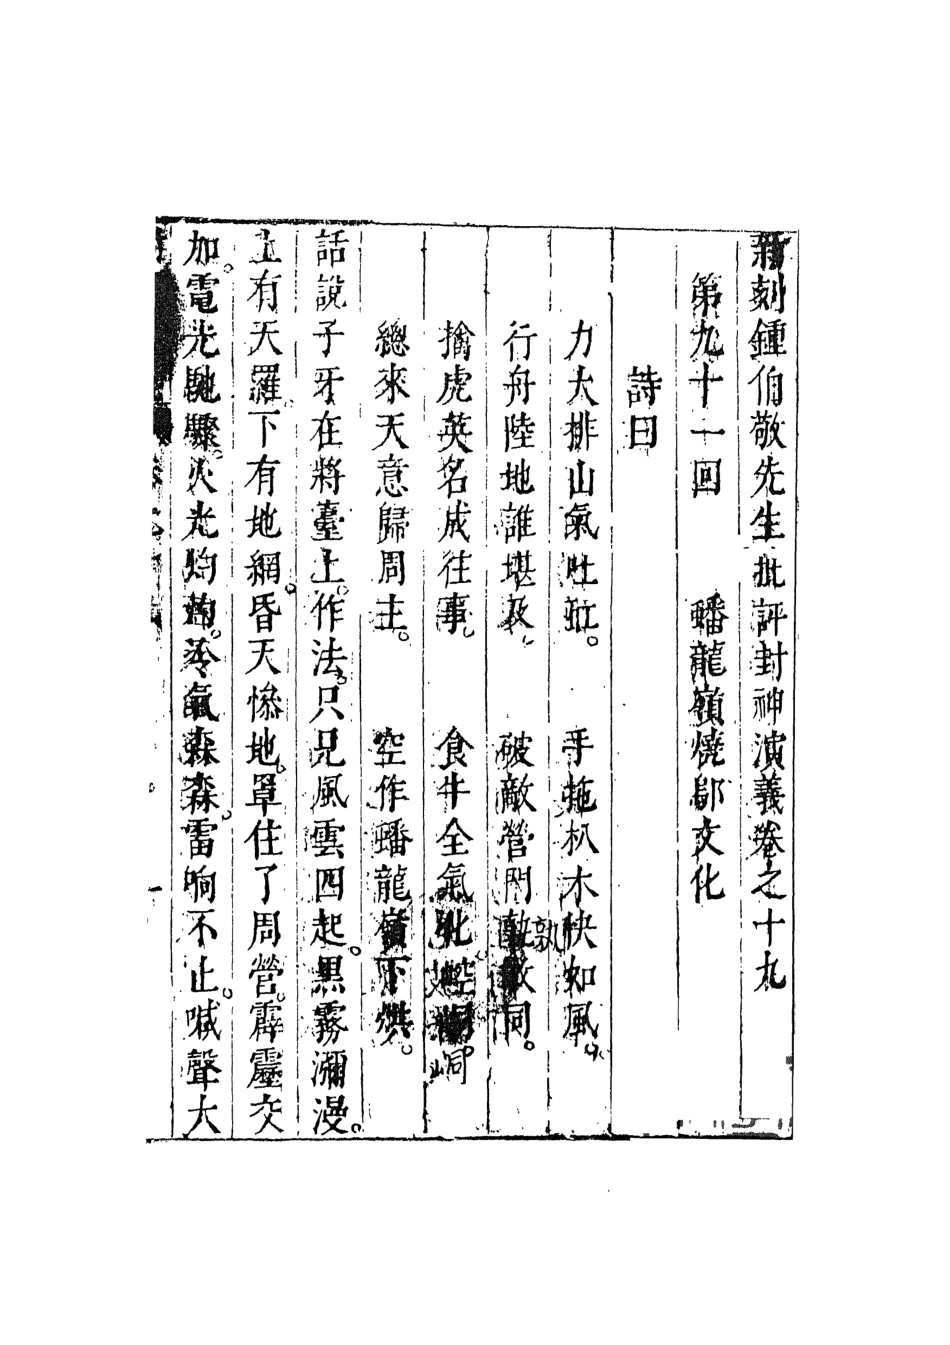 新刻鍾伯敬先生批評封神演義卷之十九
第九十一回 蟠龍嶺燒鄔文化
詩曰
力大排山氣吐虹。 手拖扒木快如風。
行舟陸地誰堪及。 破敵營門孰敢同。
擒虎英名成往事。 食牛全氣化崆峒。
總來天意歸周主。 空作蟠龍嶺下烘。
話說子牙在將臺上作法。只見風雲四起。黑霧瀰漫。
上有天羅。下有地網。昏天慘地。罩住了周營。霹靂交
加。電光馳驟。火光灼灼。冷氣森森。雷响不止。喊聲大